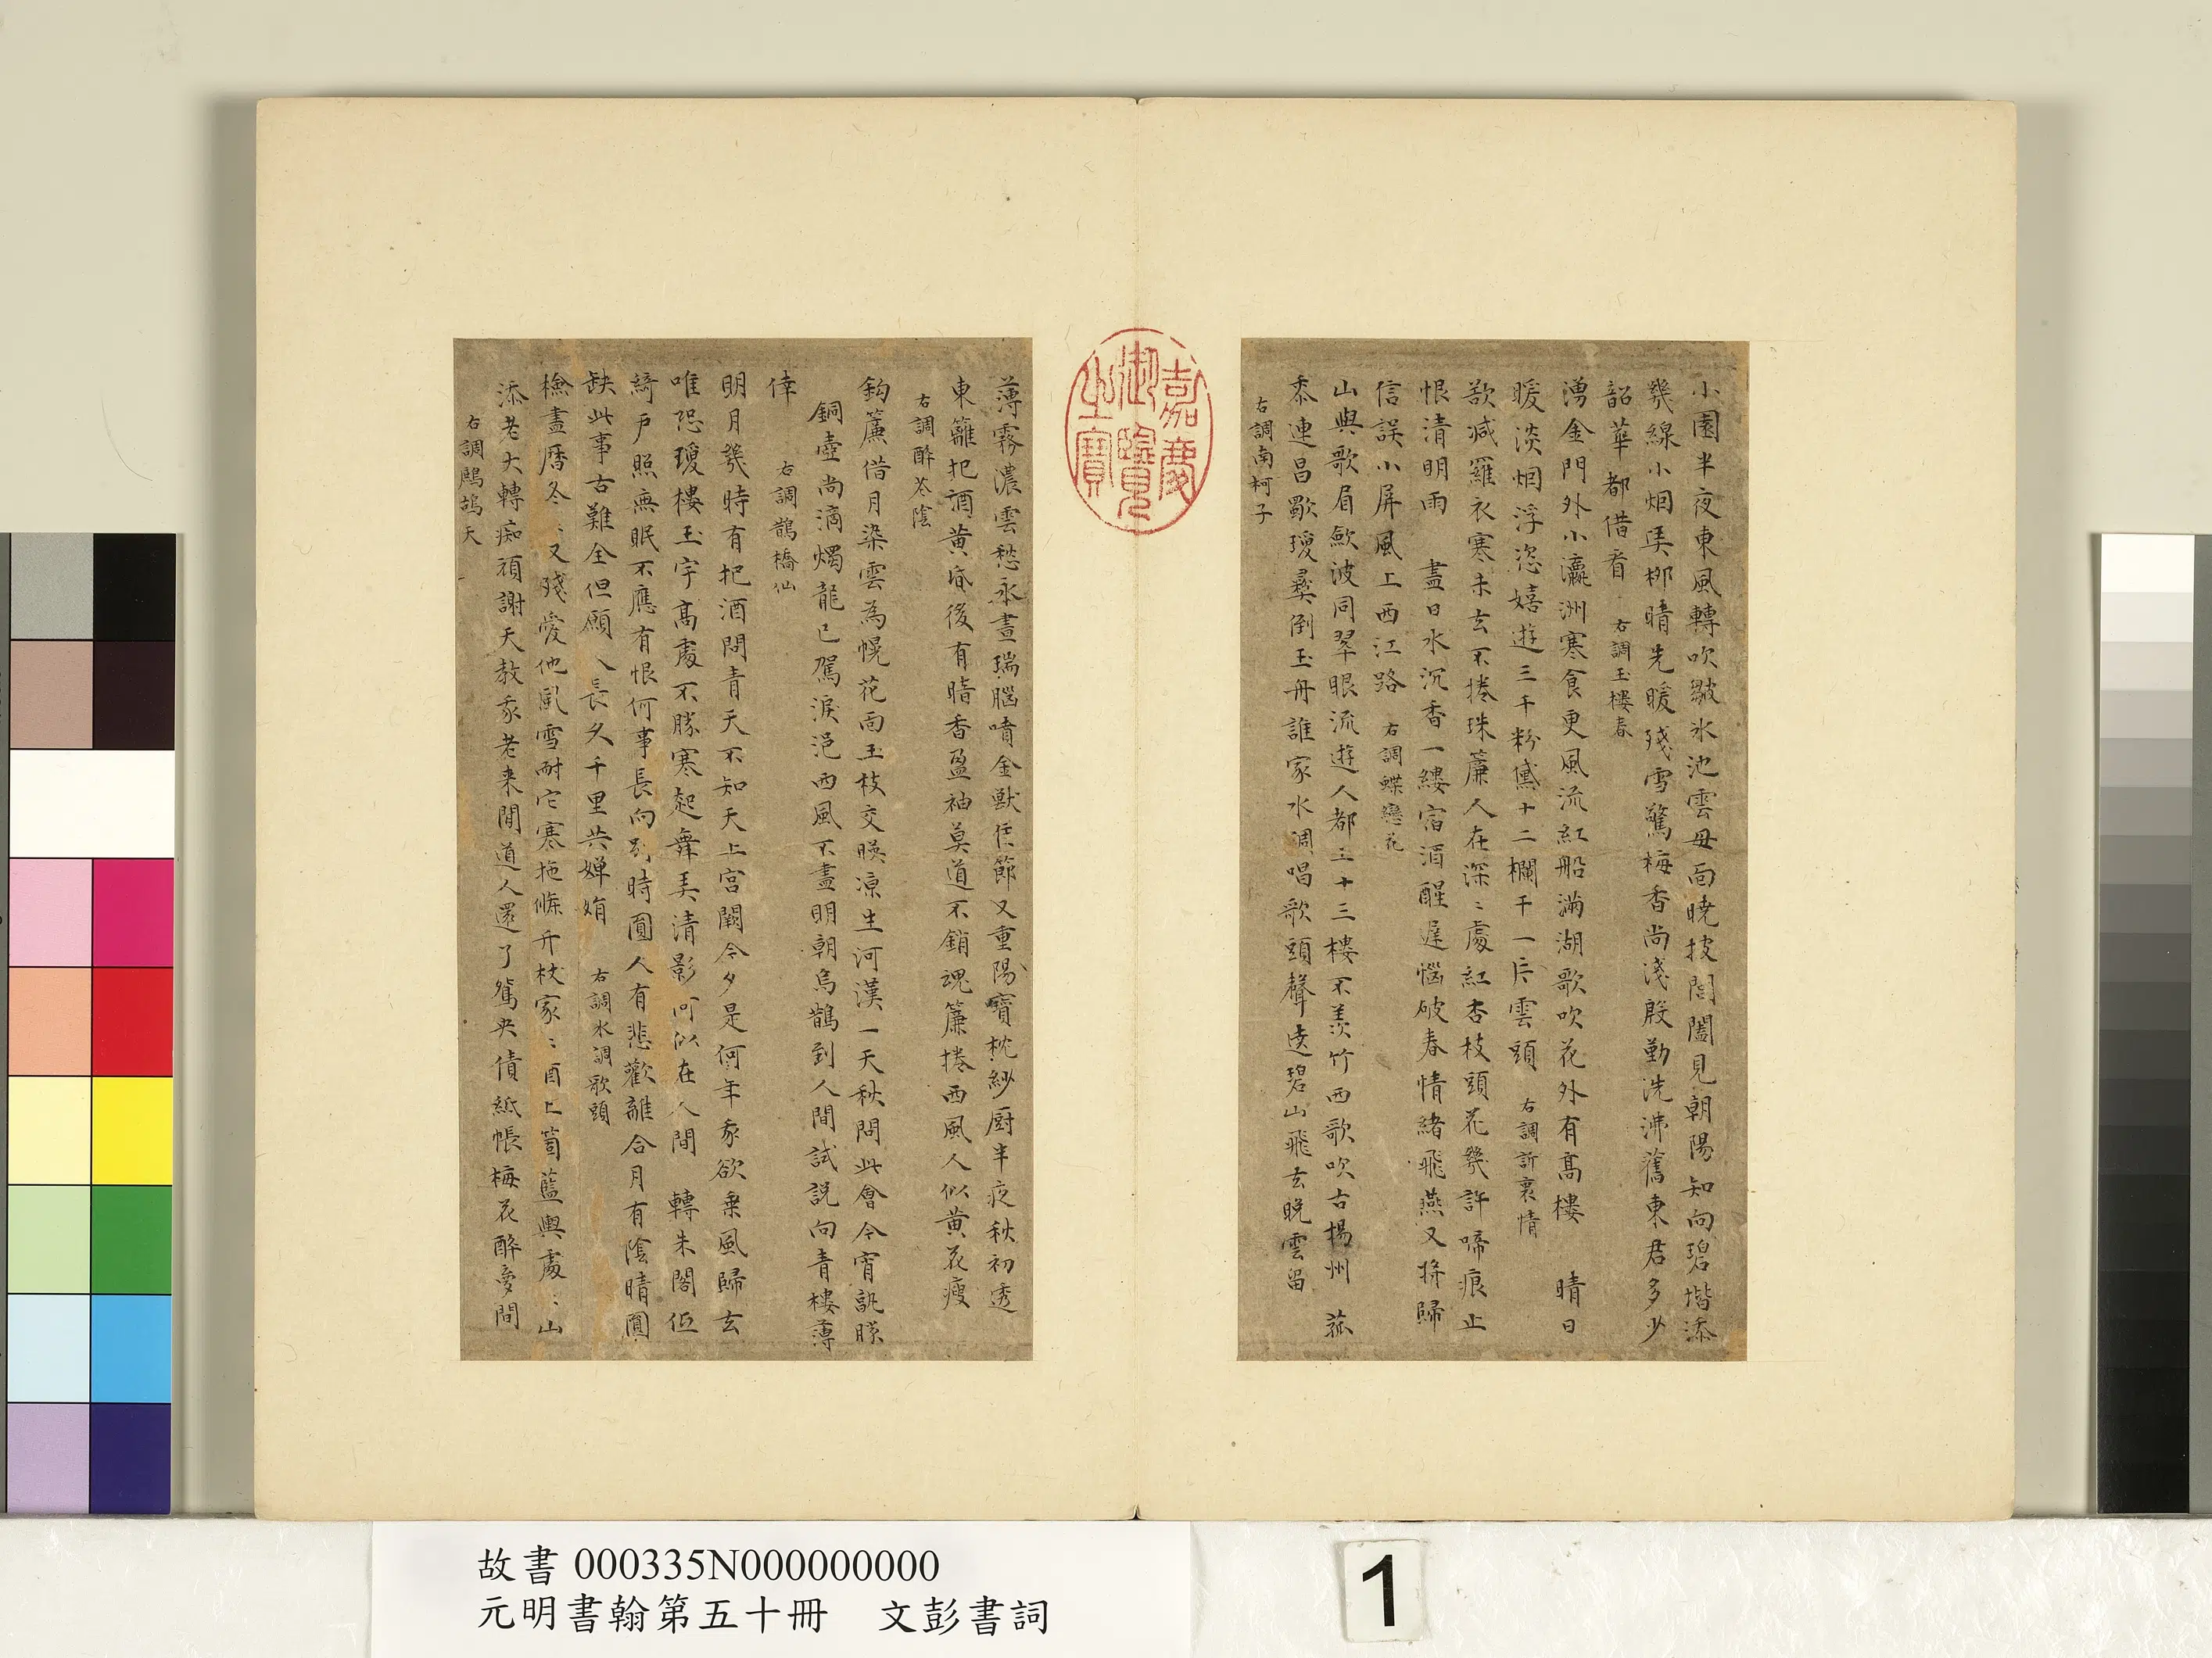 小園半夜東風轉吹皺氷池雲母面曉披閶闔見朝陽知向碧堦添
幾線小烟弄柳晴先暖殘雪驚梅香尚淺殷勤洗沸舊東君多少
韶華都借看 右調玉樓春
湧金門外小瀛洲寒食更風流紅船滿湖歌吹花外有高樓 晴日
暖淡烟浮恣嬉遊三千粉黛十二欄干一片雲頭 右調訴衷情
欲減羅衣寒未去不捲珠簾人在深〻處紅杏枝頭花幾許啼痕止
恨清明雨 盡日水沉香一縷宿酒醒遲惱破春情緒飛燕又將歸
信誤小屏風上西江路 右調蝶戀花
山與歌眉歛波同翠眼流遊人都上十三樓不羨竹西歌吹古揚州 菰
黍連昌歜瓊彝倒玉舟誰家水調唱歌頭聲遶碧山飛去晚雲留
右調南柯子
嘉慶御覽之寶
薄霧濃雲愁永晝瑞腦噴金獸佳節又重陽寶枕紗厨半夜秋初透
東籬把酒黃昏後有暗香盈袖莫道不銷魂簾捲西風人似黃花瘦
右調醉花陰
鈎簾借月染雲為幌花面玉枝交映凉生河漢一天秋問此會今宵孰勝
銅壺尚滴燭龍已駕淚浥西風不盡明朝烏鵲到人間試説向青樓薄
倖 右調鵲橋仙
明月幾時有把酒問青天不知天上宮闕今夕是何年我欲乗風歸去
唯恐瓊樓玉宇高處不勝寒起舞弄清影何似在人間 轉朱閣低
綺戶照無眠不應有恨何事長向別時圓人有悲歡離合月有陰晴圓
缺此事古難全但願人長久千里共嬋娟 右調水調歌頭
檢盡曆冬〻又殘愛他風雪耐它寒拖條竹杖家〻酒上箇藍輿處〻山
添老大轉痴頑謝天教我老來閒道人還了鴛央債紙帳梅花醉夢間
右調鷓鴣天
故書 000335N000000000
元明書翰第五十冊 文彭書詞
1